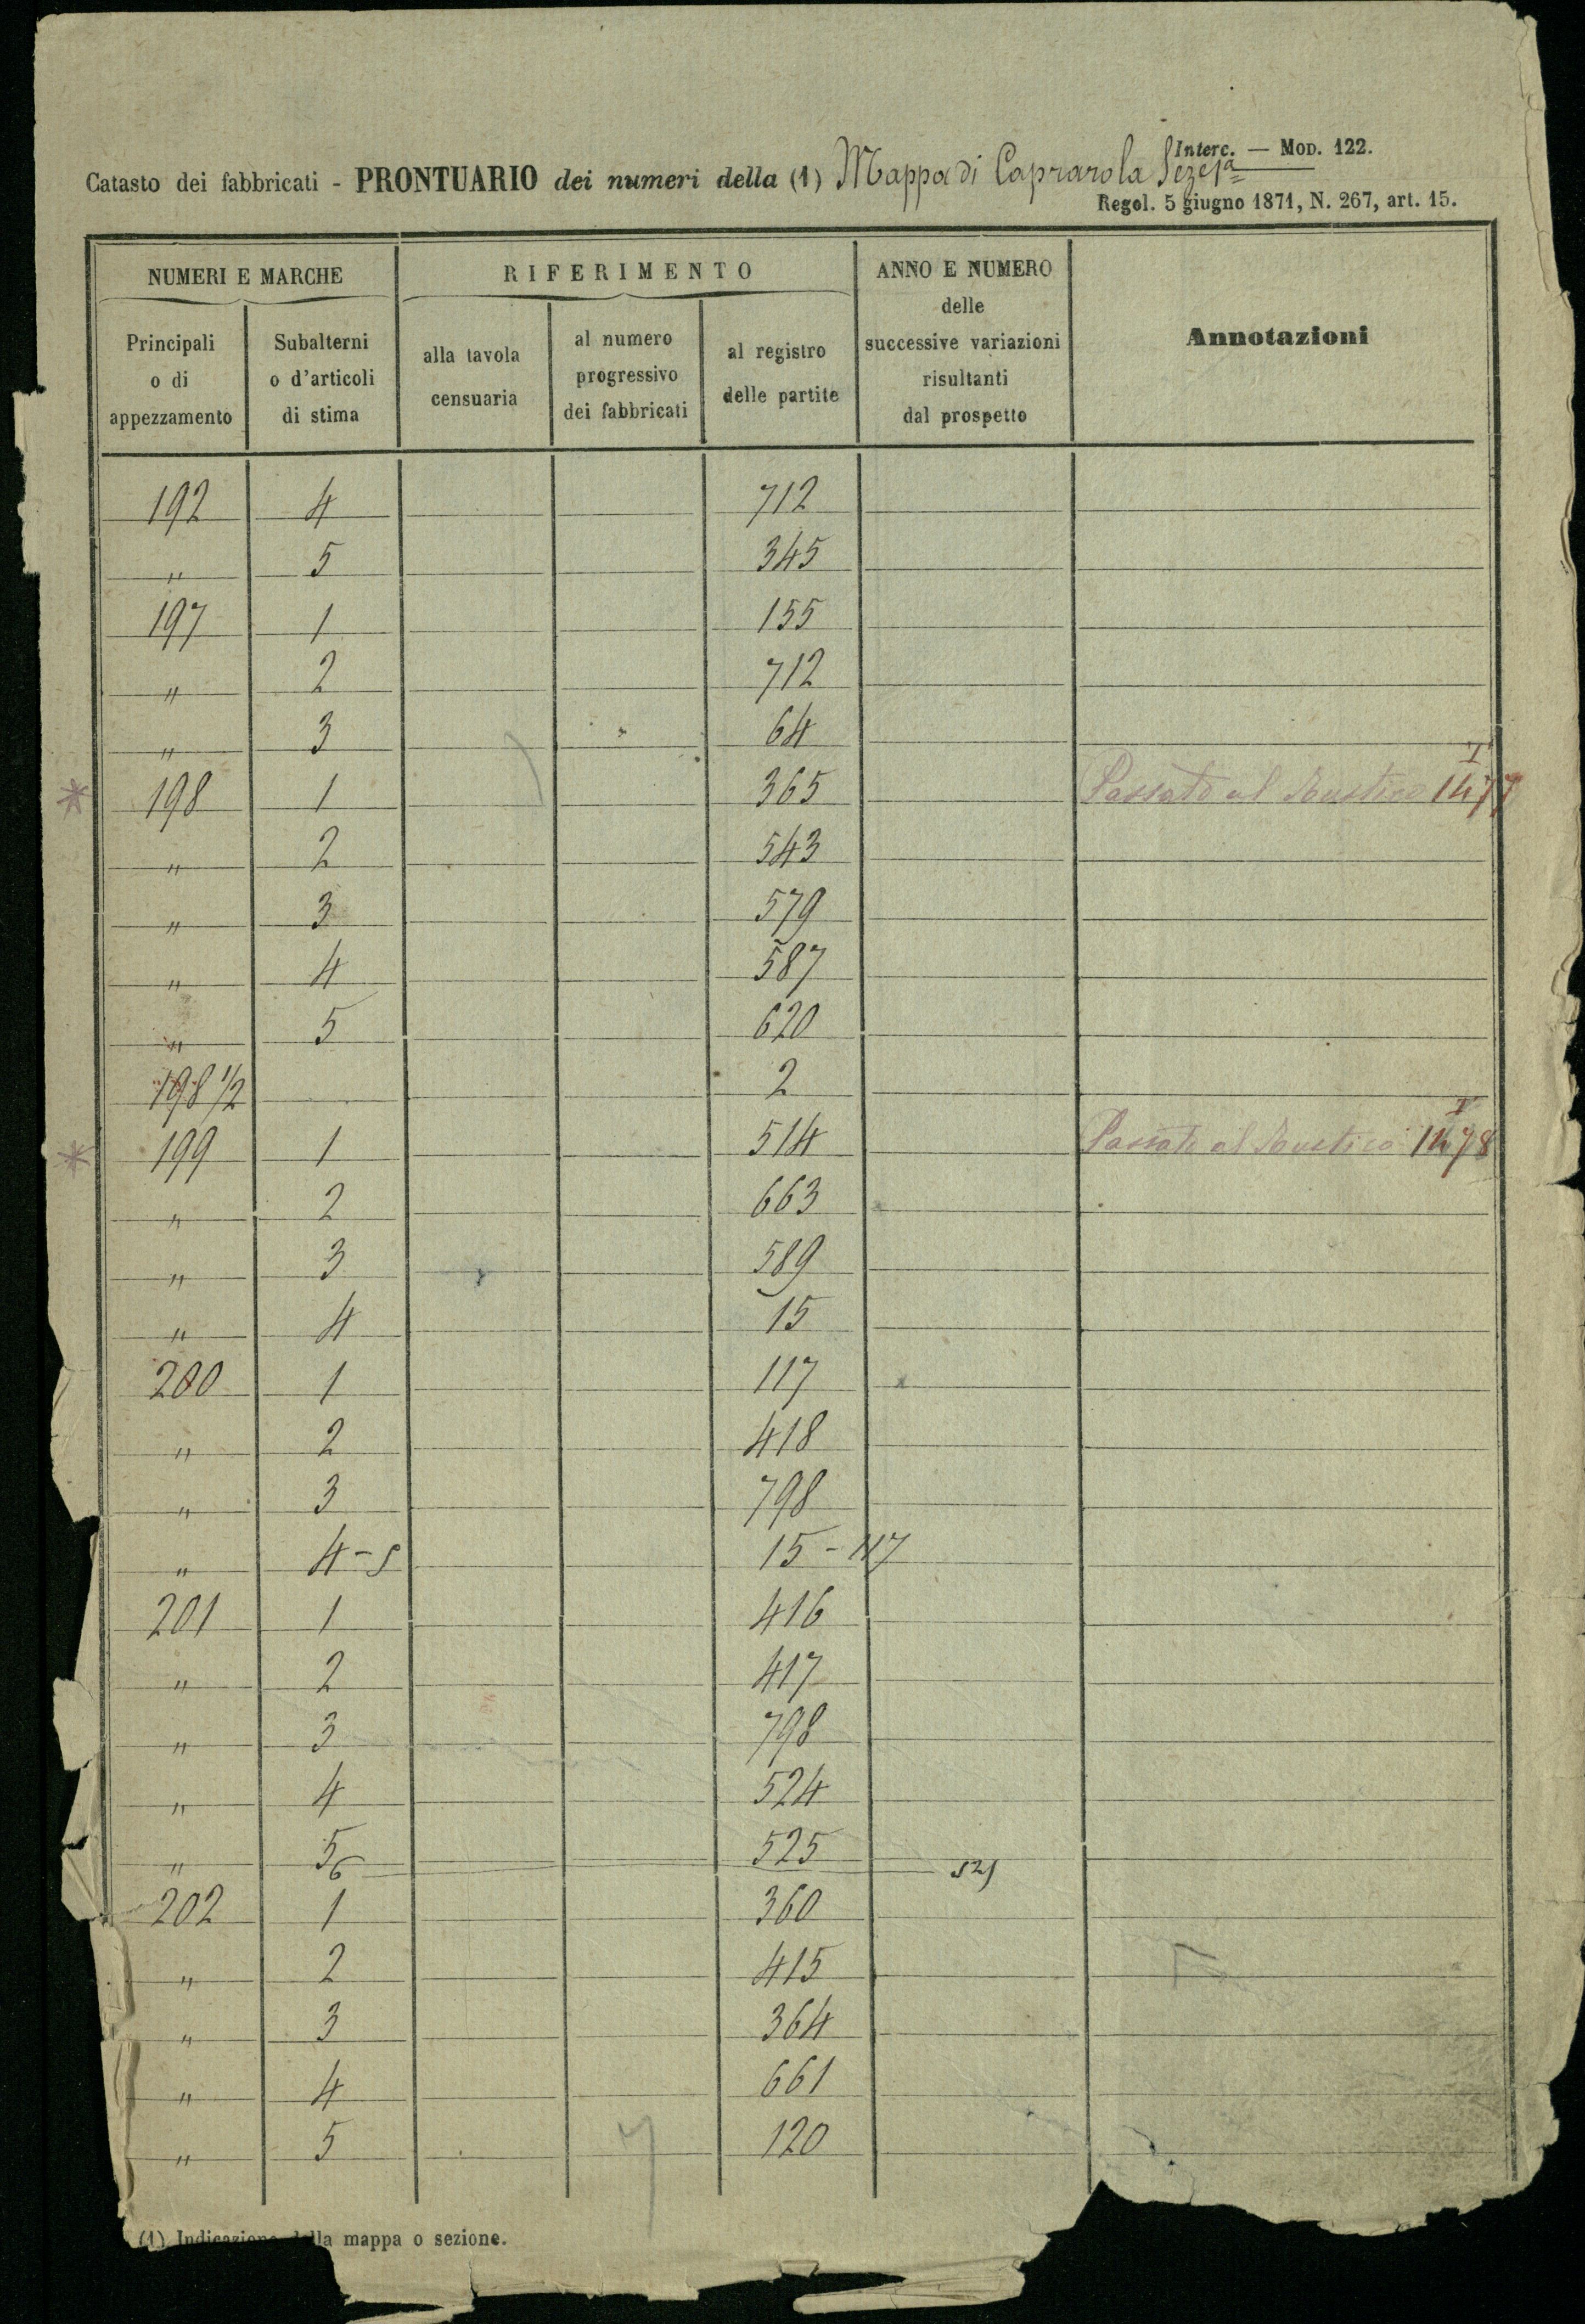 Interc. — Mod. 122.
Catasto dei fabbricati - PRONTUARIO dei numeri della (1) Mappa di Caprarola Sez. 1ª
Regol. 5 giugno 1871, N. 267, art. 15.
NUMERI E MARCHE RIFERIMENTO ANNO E NUMERO delle successive variazioni risultanti dal prospetto Annotazioni
Principali o di appezzamento Subalterni o d'articoli di stima alla tavola censuaria al numero progressivo dei fabbricati al registro delle partite
192 4 712
" 5 345
197 1 155
" 2 712
" 3 64
* 198 1 365 Passato al Rustico 1477
" 2 543
" 3 579
" 4 587
" 5 620
198 1/2 2
* 199 1 514 Passato al Rustico 1478
" 2 663
" 3 589
" 4 15
200 1 117
" 2 418
" 3 798
" 4-5 15-117
201 1 416
" 2 417
" 3 798
" 4 524
" 5 525
6 525
202 1 360
" 2 415
" 3 364
" 4 661
" 5 120
(1) Indicazione della mappa o sezione.